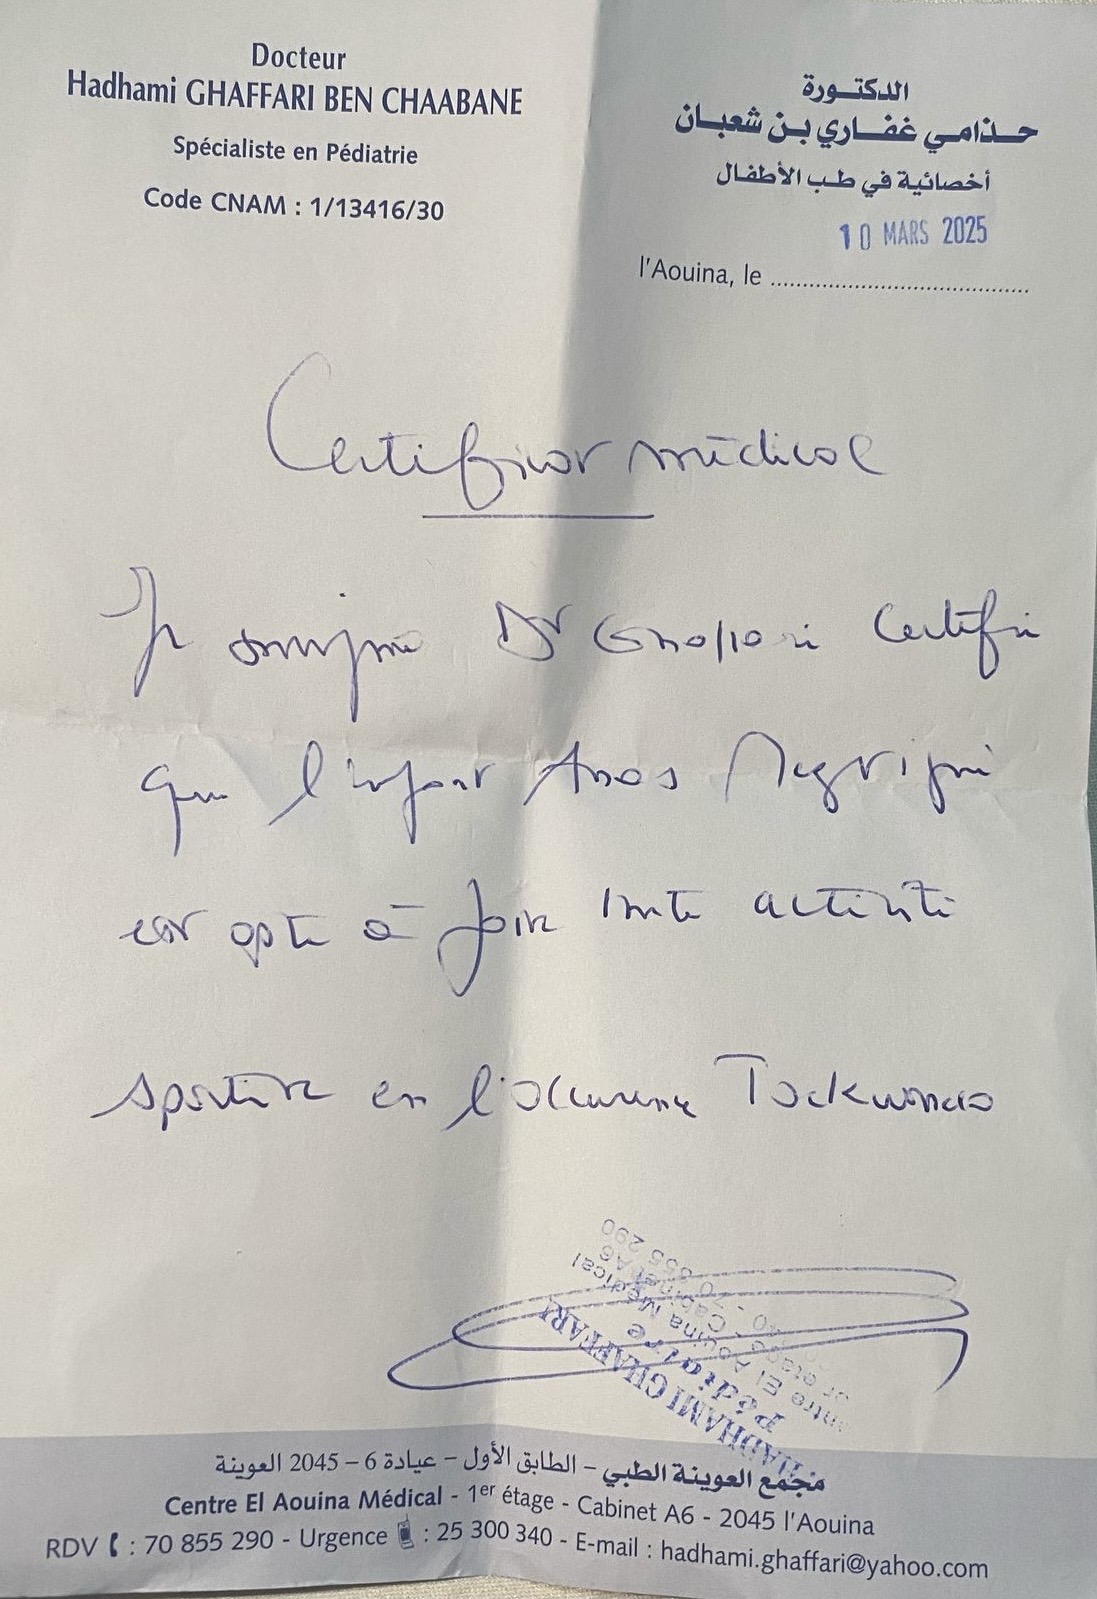 Docteur
Hadhami GHAFFARI BEN CHAABANE
Spécialiste en Pédiatrie
Code CNAM : 1/13416/30
الدكتورة
حذامي غفاري بن شعبان
أخصائية في طب الأطفال
10 MARS 2025
l'Aouina, le
Certificat médical
Je soussigné Dr Ghaffari Certifie
que l'enfant Anas
est apte à faire toute activité
sportive en l'occurence Taekwondo
HADHAMI GHAFFARI
Pédiatre
Centre El Aouina Médical
er étage - Cabinet A6
70 855 290
مجمع العوينة الطبي – الطابق الأول – عيادة 6 – 2045 العوينة
Centre El Aouina Médical - 1er étage - Cabinet A6 - 2045 l'Aouina
RDV : 70 855 290 - Urgence : 25 300 340 - E-mail : hadhami.ghaffari@yahoo.com